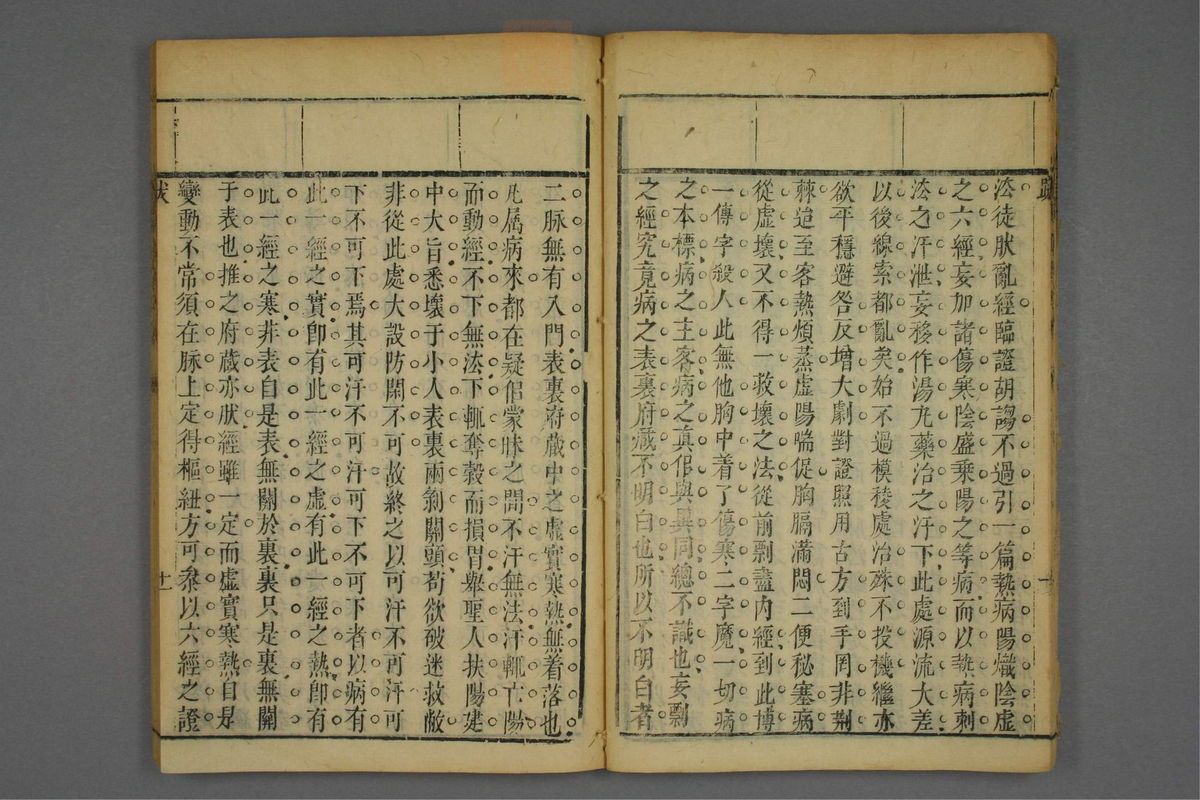 跋
法徒肰亂經臨證胡謅不過引一篇熱病陽熾陰虛
之六經妄加諸傷寒陰盛乘陽之等病而以熱病刺
法之汗泄妄移作湯尢藥治之汗下此處源流大差
以後線索都亂矣始不過模稜處治殊不投機繼亦
欲平穩避咎反增大劇對證照用古方到手罔非荆
棘迨至客熱煩蒸虛陽喘促胸膈滿悶二便秘塞病
從虛壞又不得一救壞之法從前剽盡内經到此博
一傳字殺人此無他胸中着了傷寒二字魔一切病
之本標病之主客病之真假與異同總不識也妄剽
之經究竟病之表裏府藏不明白也所以不明白者
二脉無有入門表裏府藏中之虛實寒熱無着落也
凢屬病來都在疑倌蒙昧之間不汗無法汗輒亡陽
而動經不下無法下輒奪穀而損胃舉聖人扶陽建
中大旨悉壞于小人表裏兩剝關頭苟欲破迷救敝
非從此處大設防閑不可故終之以可汗不可汗可
下不可下焉其可汗不可汗可下不可下者以病有
此一經之實即有此一經之虛有此一經之熱即有
此一經之寒非表自是表無關於裏裏只是裏無關
于表也推之府藏亦肰經雖一定而虛實寒熱自是
變動不常須在脉上定得樞紐方可叅以六經之證
十一